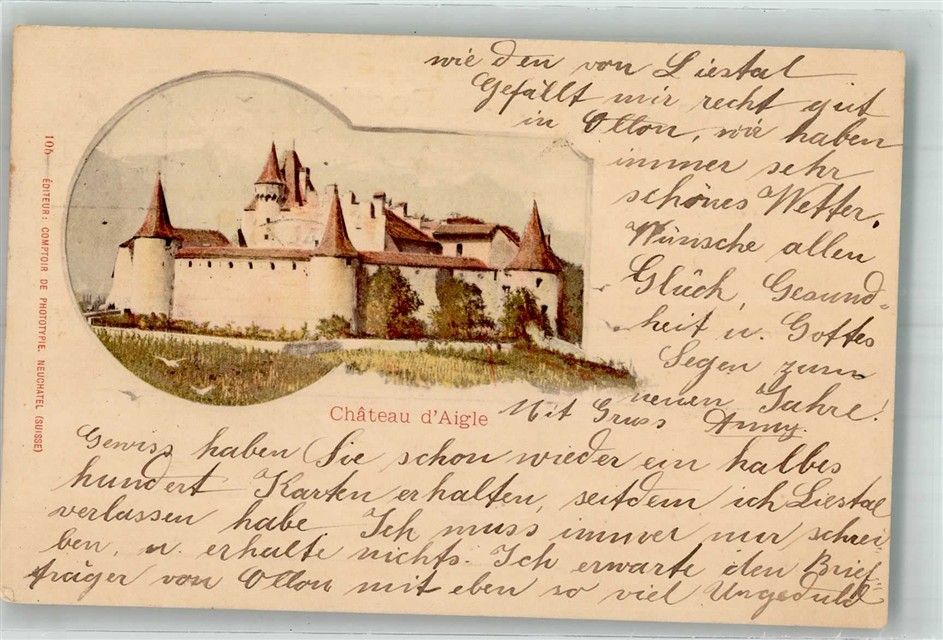 Gewiss haben Sie schon wieder ein halbes
hundert Karten erhalten, seitdem ich Liestal
verlassen habe. Ich muss immer nur schrei
ben, u. erhalte nichts. Ich erwarte den Brief
träger von Ollon mit eben so viel Ungeduld
wie den von Liestal
Gefällt mir recht gut
in Ollon, wir haben
immer sehr
schönes Wetter.
Wünsche allen
Glück, Gesund-
heit u. Gottes
Segen zum
neuen Jahre!
Mit Gruss Anny.
Château d'Aigle
106 ÉDITEUR: COMPTOIR DE PHOTOTYPIE, NEUCHATEL (SUISSE)